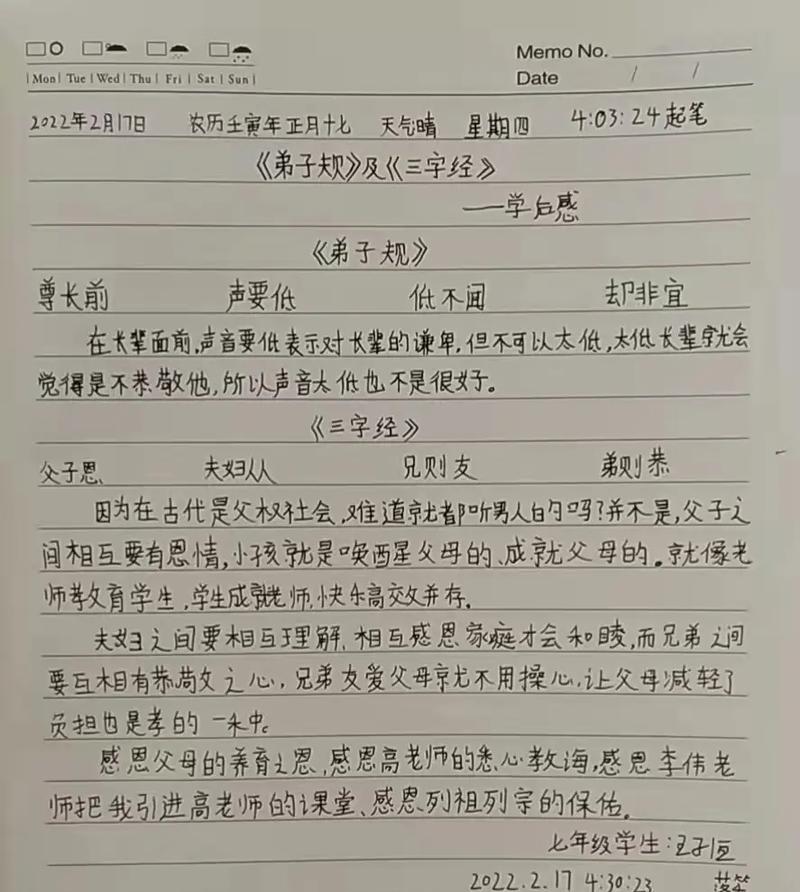 Memo No.
Mon Tue Wed Thu Fri Sat Sun
Date / /
2022年2月17日 农历壬寅年正月十七 天气晴 星期四 4:03:24起笔
《弟子规》及《三字经》
——学后感
《弟子规》
尊长前 声要低 低不闻 却非宜
在长辈面前,声音要低表示对长辈的谦卑,但不可以太低,太低长辈就会
觉得是不恭敬他,所以声音太低也不是很好。
《三字经》
父子恩 夫妇从 兄则友 弟则恭
因为在古代是父权社会,难道就都听男人的吗?并不是,父子之
间相互要有恩情,小孩就是唤醒父母的、成就父母的。就像老
师教育学生,学生成就老师,快乐高效并存。
夫妇之间要相互理解、相互感恩家庭才会和睦,而兄弟之间
要互相有恭敬之心,兄弟友爱父母就不用操心,让父母减轻了
负担也是孝的一种。
感恩父母的养育之恩,感恩高老师的悉心教诲,感恩李伟老
师把我引进高老师的课堂、感恩列祖列宗的保佑。
七年级学生:王子恒
2022.2.17 4:30:23 落笔